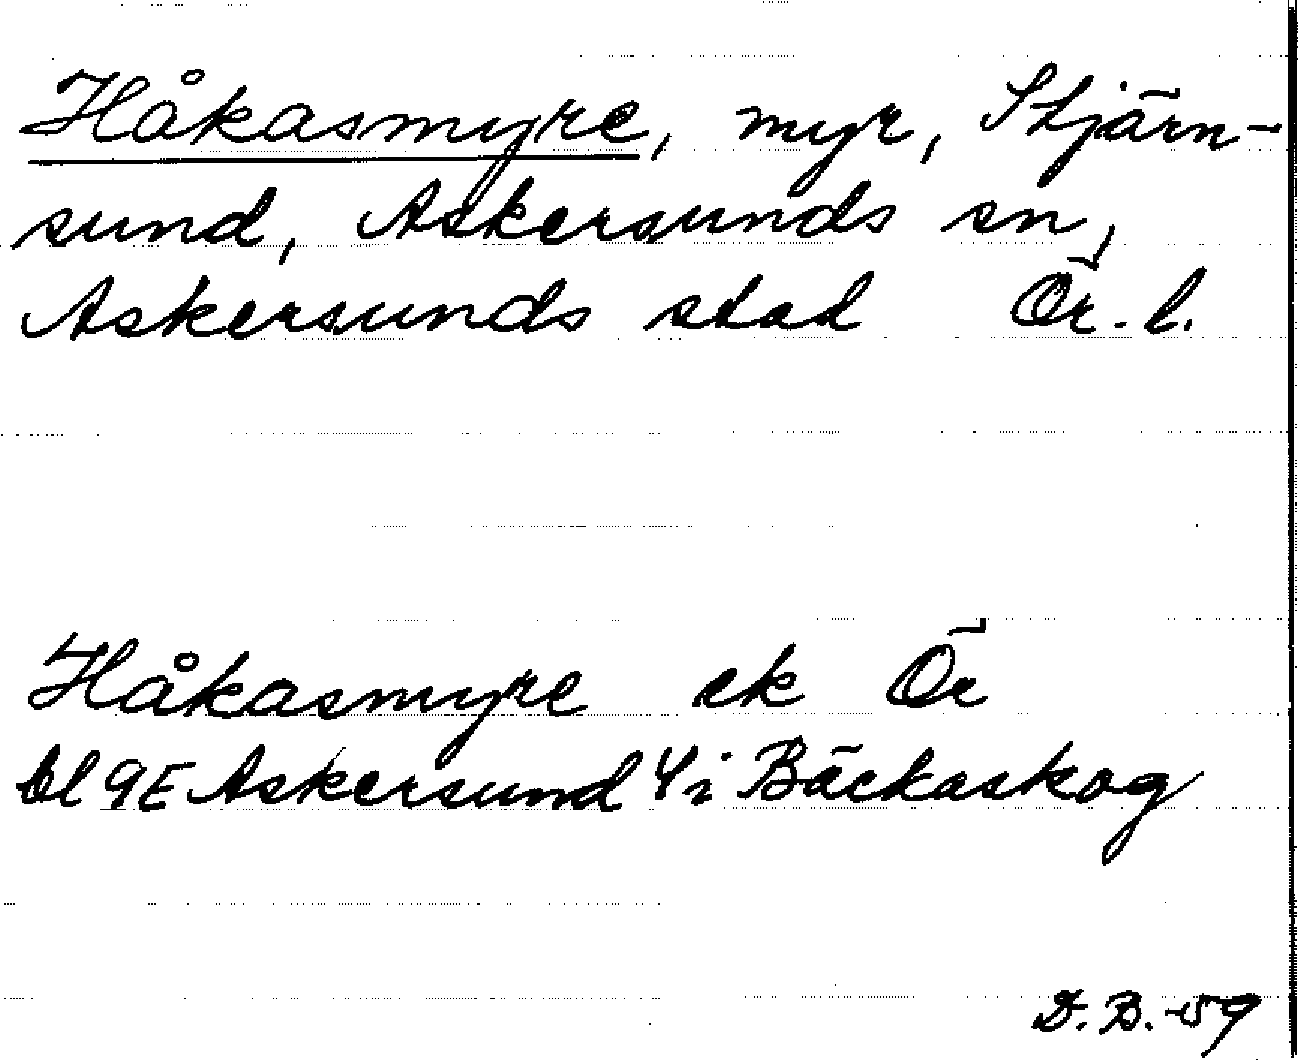 Håkasmyre, myr, Stjärn-
sund, Askersunds sn,
Askersunds stad Ör. l.
Håkasmyre ek Ör
bl 9E Askersund 4i Bäckaskog
D. B. -59